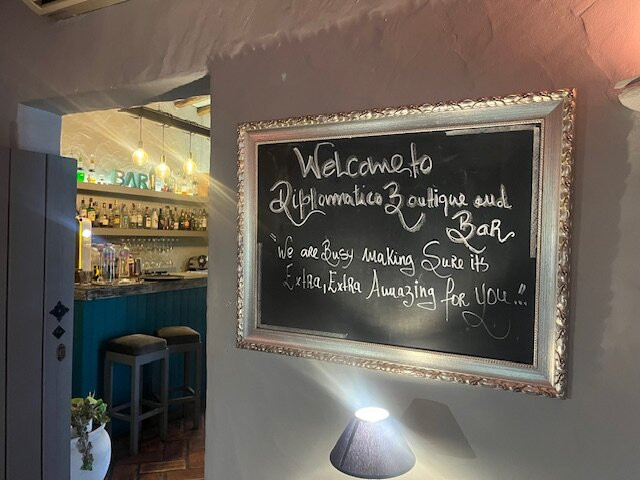 BAR
Welcome to
Diplomatico Boutique and
Bar
"We are Busy making Sure its
Extra, Extra Amazing for You..."